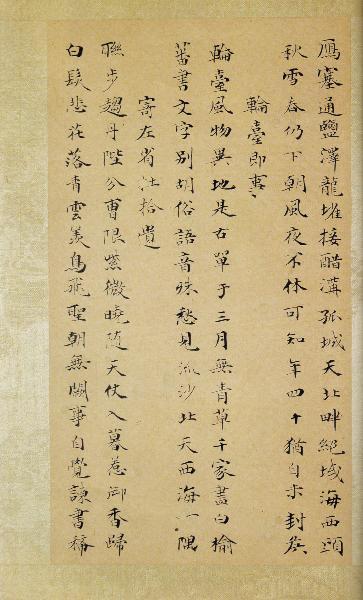 鴈塞通鹽澤龍堆接醋溝孤城天北畔絕域海西頭
秋雪春仍下朝風夜不休可知年四十猶自未封侯
輪臺即事
輪臺風物異地是古單于三月無青草千家盡白榆
蕃書文字別胡俗語音殊愁見流沙北天西海一隅
寄左省杜拾遺
聯步趨丹陛分曹限紫微曉隨天仗入暮惹御香歸
白髮悲花落青雲羨鳥飛聖朝無闕事自覺諫書稀